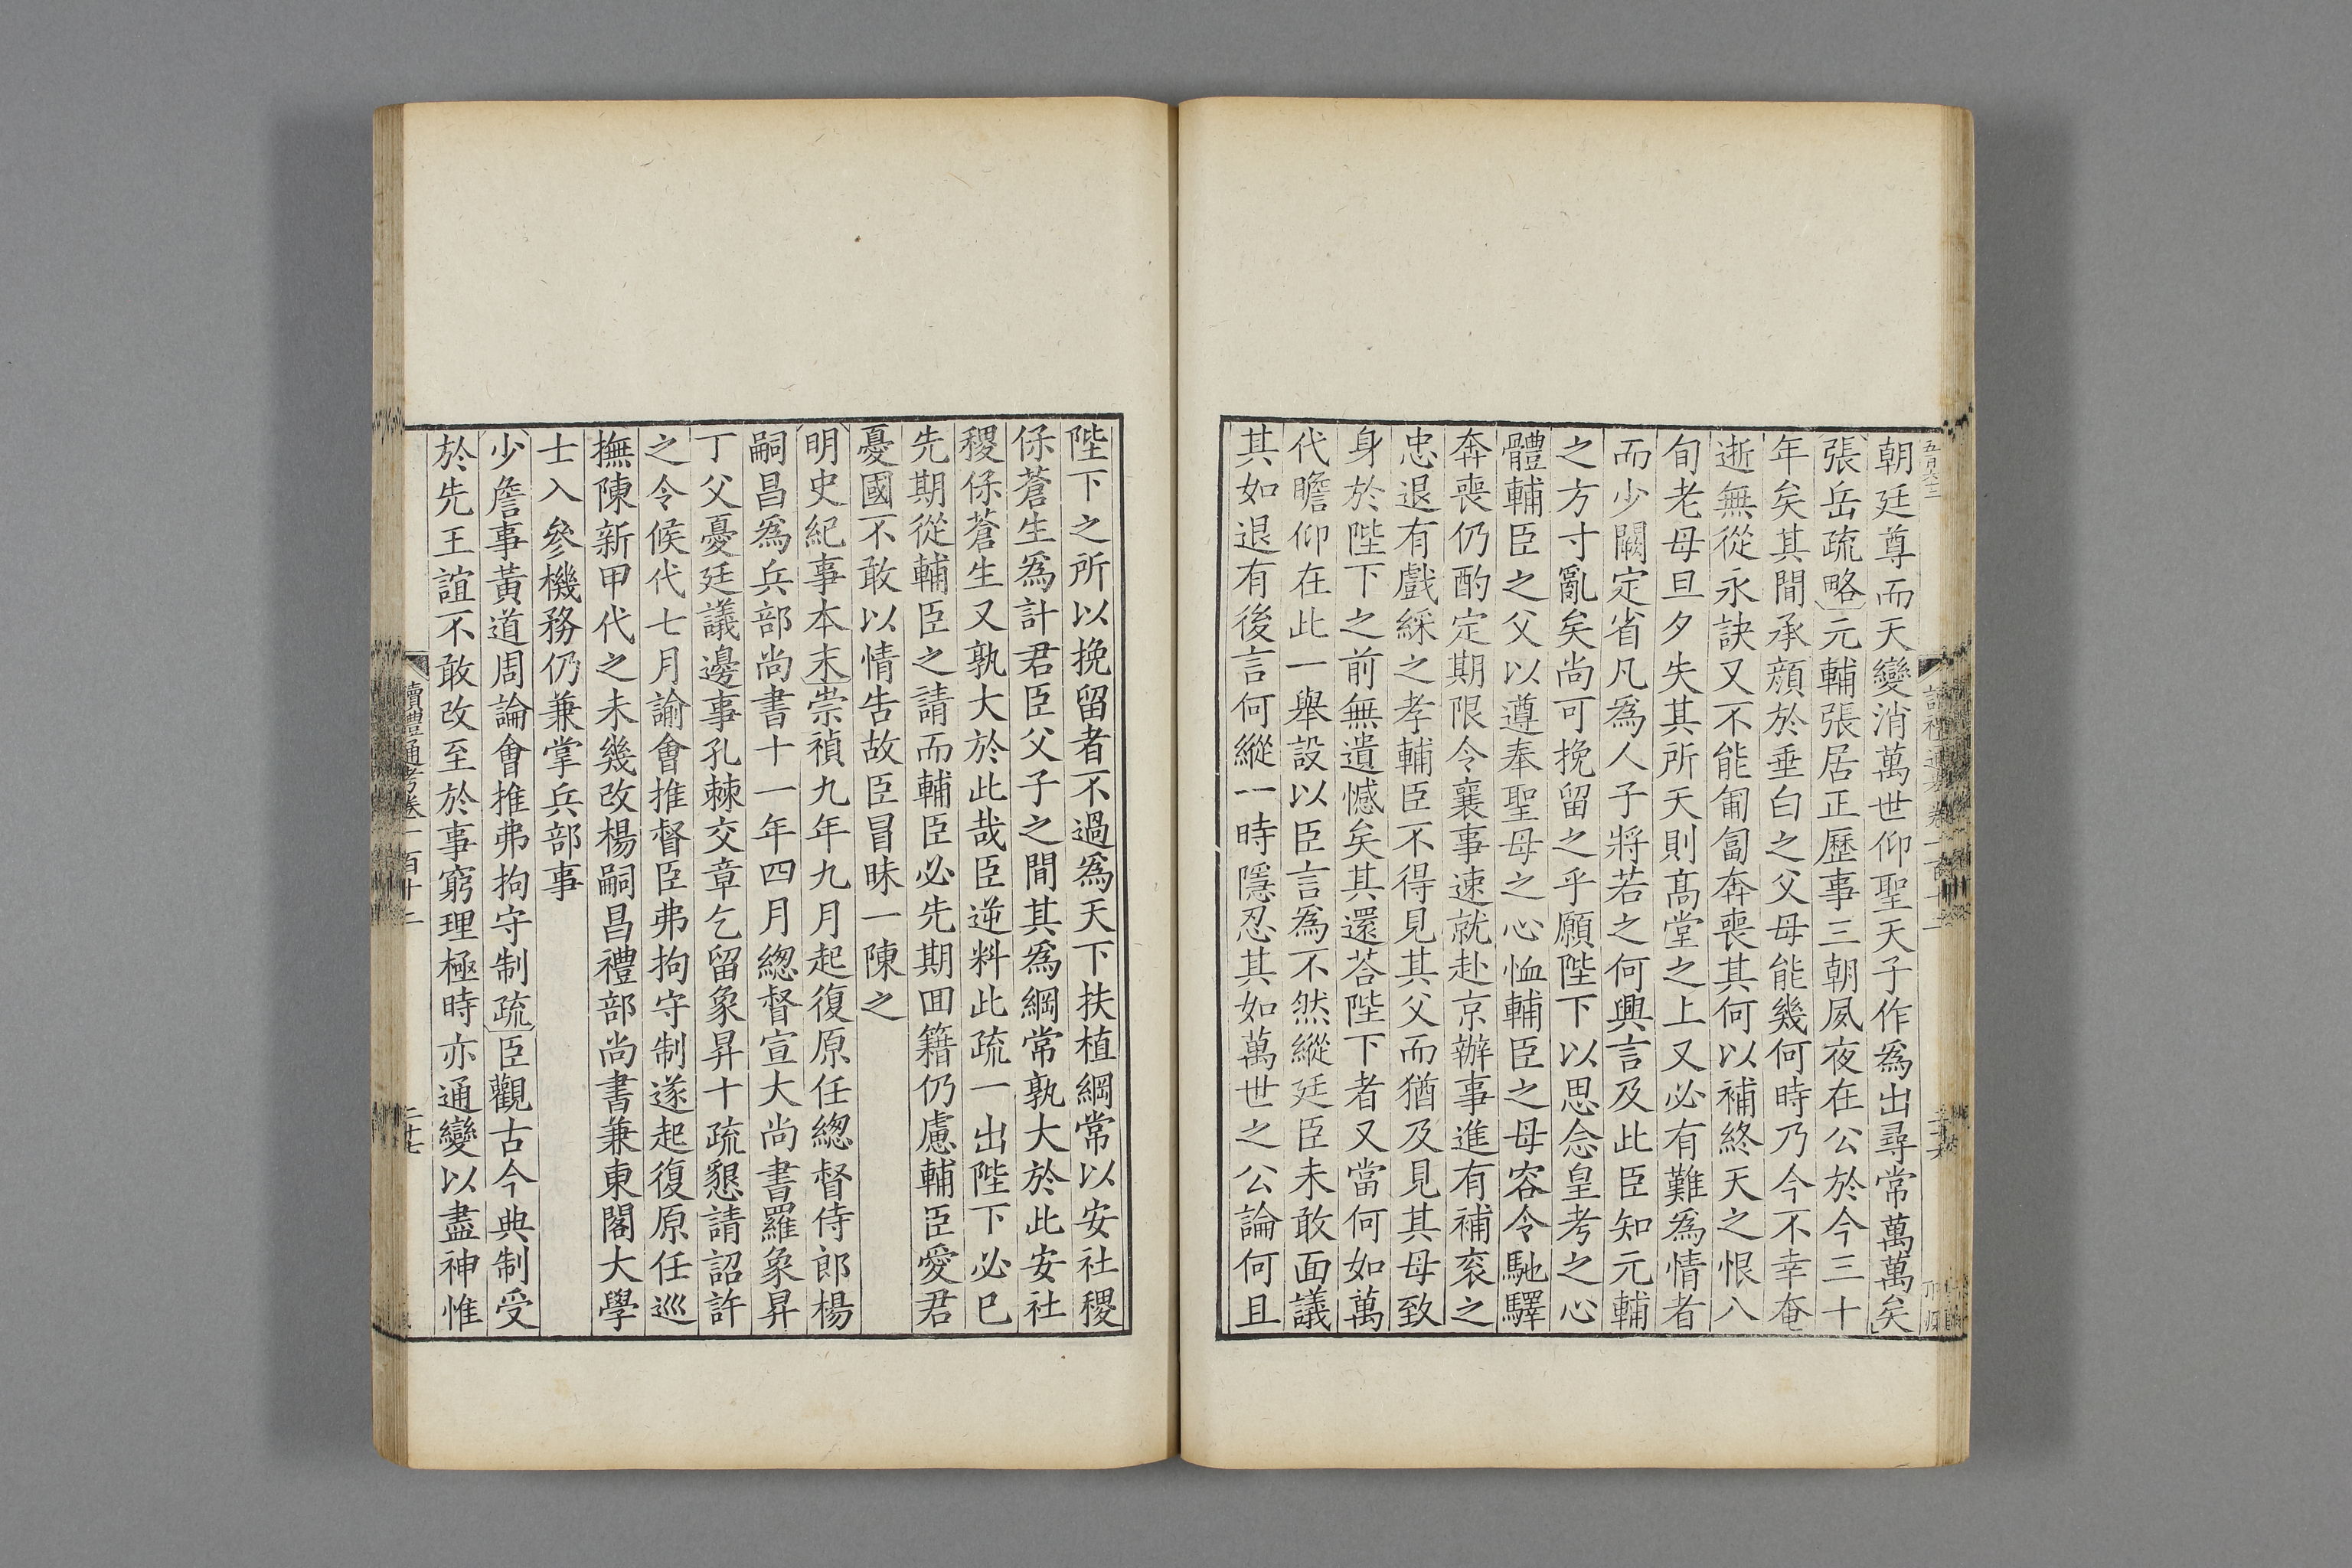 朝廷尊而天變消萬世仰聖天子作爲出尋常萬萬矣
張岳疏略元輔張居正歷事三朝夙夜在公於今三十
年矣其間承顔於垂白之父母能幾何時乃今不幸奄
逝無從永訣又不能匍匐奔喪其何以補終天之恨八
旬老母旦夕失其所天則髙堂之上又必有難爲情者
而少闕定省凡爲人子將若之何興言及此臣知元輔
之方寸亂矣尚可挽留之乎願陛下以思念皇考之心
體輔臣之父以遵奉聖母之心恤輔臣之母容令馳驛
奔喪仍酌定期限令襄事速就赴京辦事進有補衮之
忠退有戲綵之孝輔臣不得見其父而猶及見其母致
身於陛下之前無遺憾矣其還荅陛下者又當何如萬
代瞻仰在此一舉設以臣言為不然縱廷臣未敢面議
其如退有後言何縱一時隱忍其如萬世之公論何且
陛下之所以挽留者不過爲天下扶植綱常以安社稷
保蒼生爲計君臣父子之間其爲綱常孰大於此安社
稷保蒼生又孰大於此哉臣逆料此疏一出陛下必已
先期從輔臣之請而輔臣必先期囬籍仍慮輔臣愛君
憂國不敢以情告故臣冒昧一陳之
明史紀事本末崇禎九年九月起復原任緫督侍郎楊
嗣昌爲兵部尚書十一年四月緫督宣大尚書羅象昇
丁父憂廷議邊事孔棘交章乞留象昇十疏懇請詔許
之令候代七月諭會推督臣弗拘守制遂起復原任巡
撫陳新甲代之未幾改楊嗣昌禮部尚書兼東閣大學
士入參機務仍兼掌兵部事
少詹事黃道周論會推弗拘守制疏臣觀古今典制受
於先王誼不敢改至於事窮理極時亦通變以盡神惟
讀禮通考卷一百十二
二十七